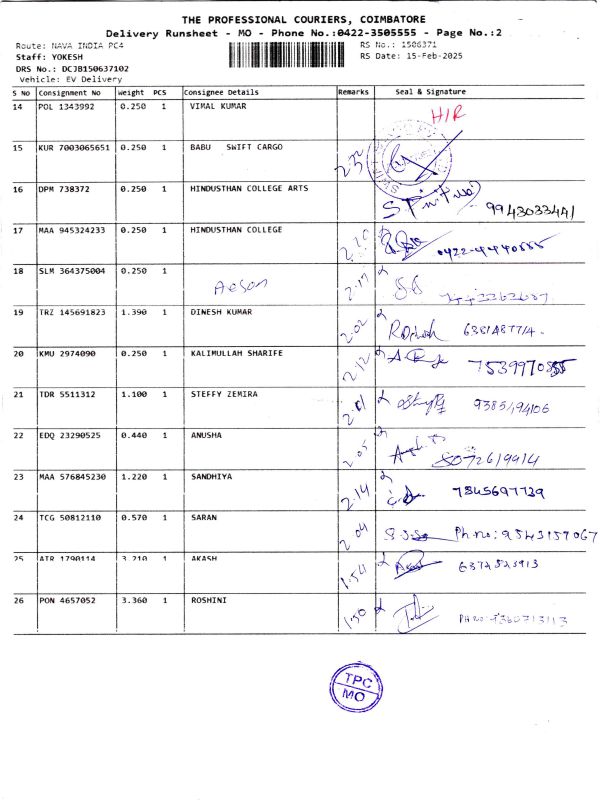 THE PROFESSIONAL COURIERS, COIMBATORE
Delivery Runsheet - MO - Phone No.:0422-3505555 - Page No.:2
Route: NAVA INDIA PC4 RS No.: 1506371
Staff: YOKESH RS Date: 15-Feb-2025
DRS No.: DCJB150637102
Vehicle: EV Delivery
S No Consignment No Weight PCS Consignee Details Remarks Seal & Signature
14 POL 1343992 0.250 1 VIMAL KUMAR H/R
15 KUR 7003065651 0.250 1 BABU SWIFT CARGO
16 DPM 738372 0.250 1 HINDUSTHAN COLLEGE ARTS 9943033441
17 MAA 945324233 0.250 1 HINDUSTHAN COLLEGE 2.20 0422-4440555
18 SLM 364375004 0.250 1 2.17
19 TRZ 145691823 1.390 1 DINESH KUMAR 2.02
20 KMU 2974090 0.250 1 KALIMULLAH SHARIFE 2.12
21 TDR 5511312 1.100 1 STEFFY ZEMIRA 2.01
22 EDQ 23290525 0.440 1 ANUSHA 2.05
23 MAA 576845230 1.220 1 SANDHIYA 2.14 7845697739
24 TCG 50812110 0.570 1 SARAN 2.04 Ph no: 9543157067
25 AIR 1790114 3.210 1 AKASH 1.54
26 PON 4657052 3.360 1 ROSHINI 1.50
TPC
MO